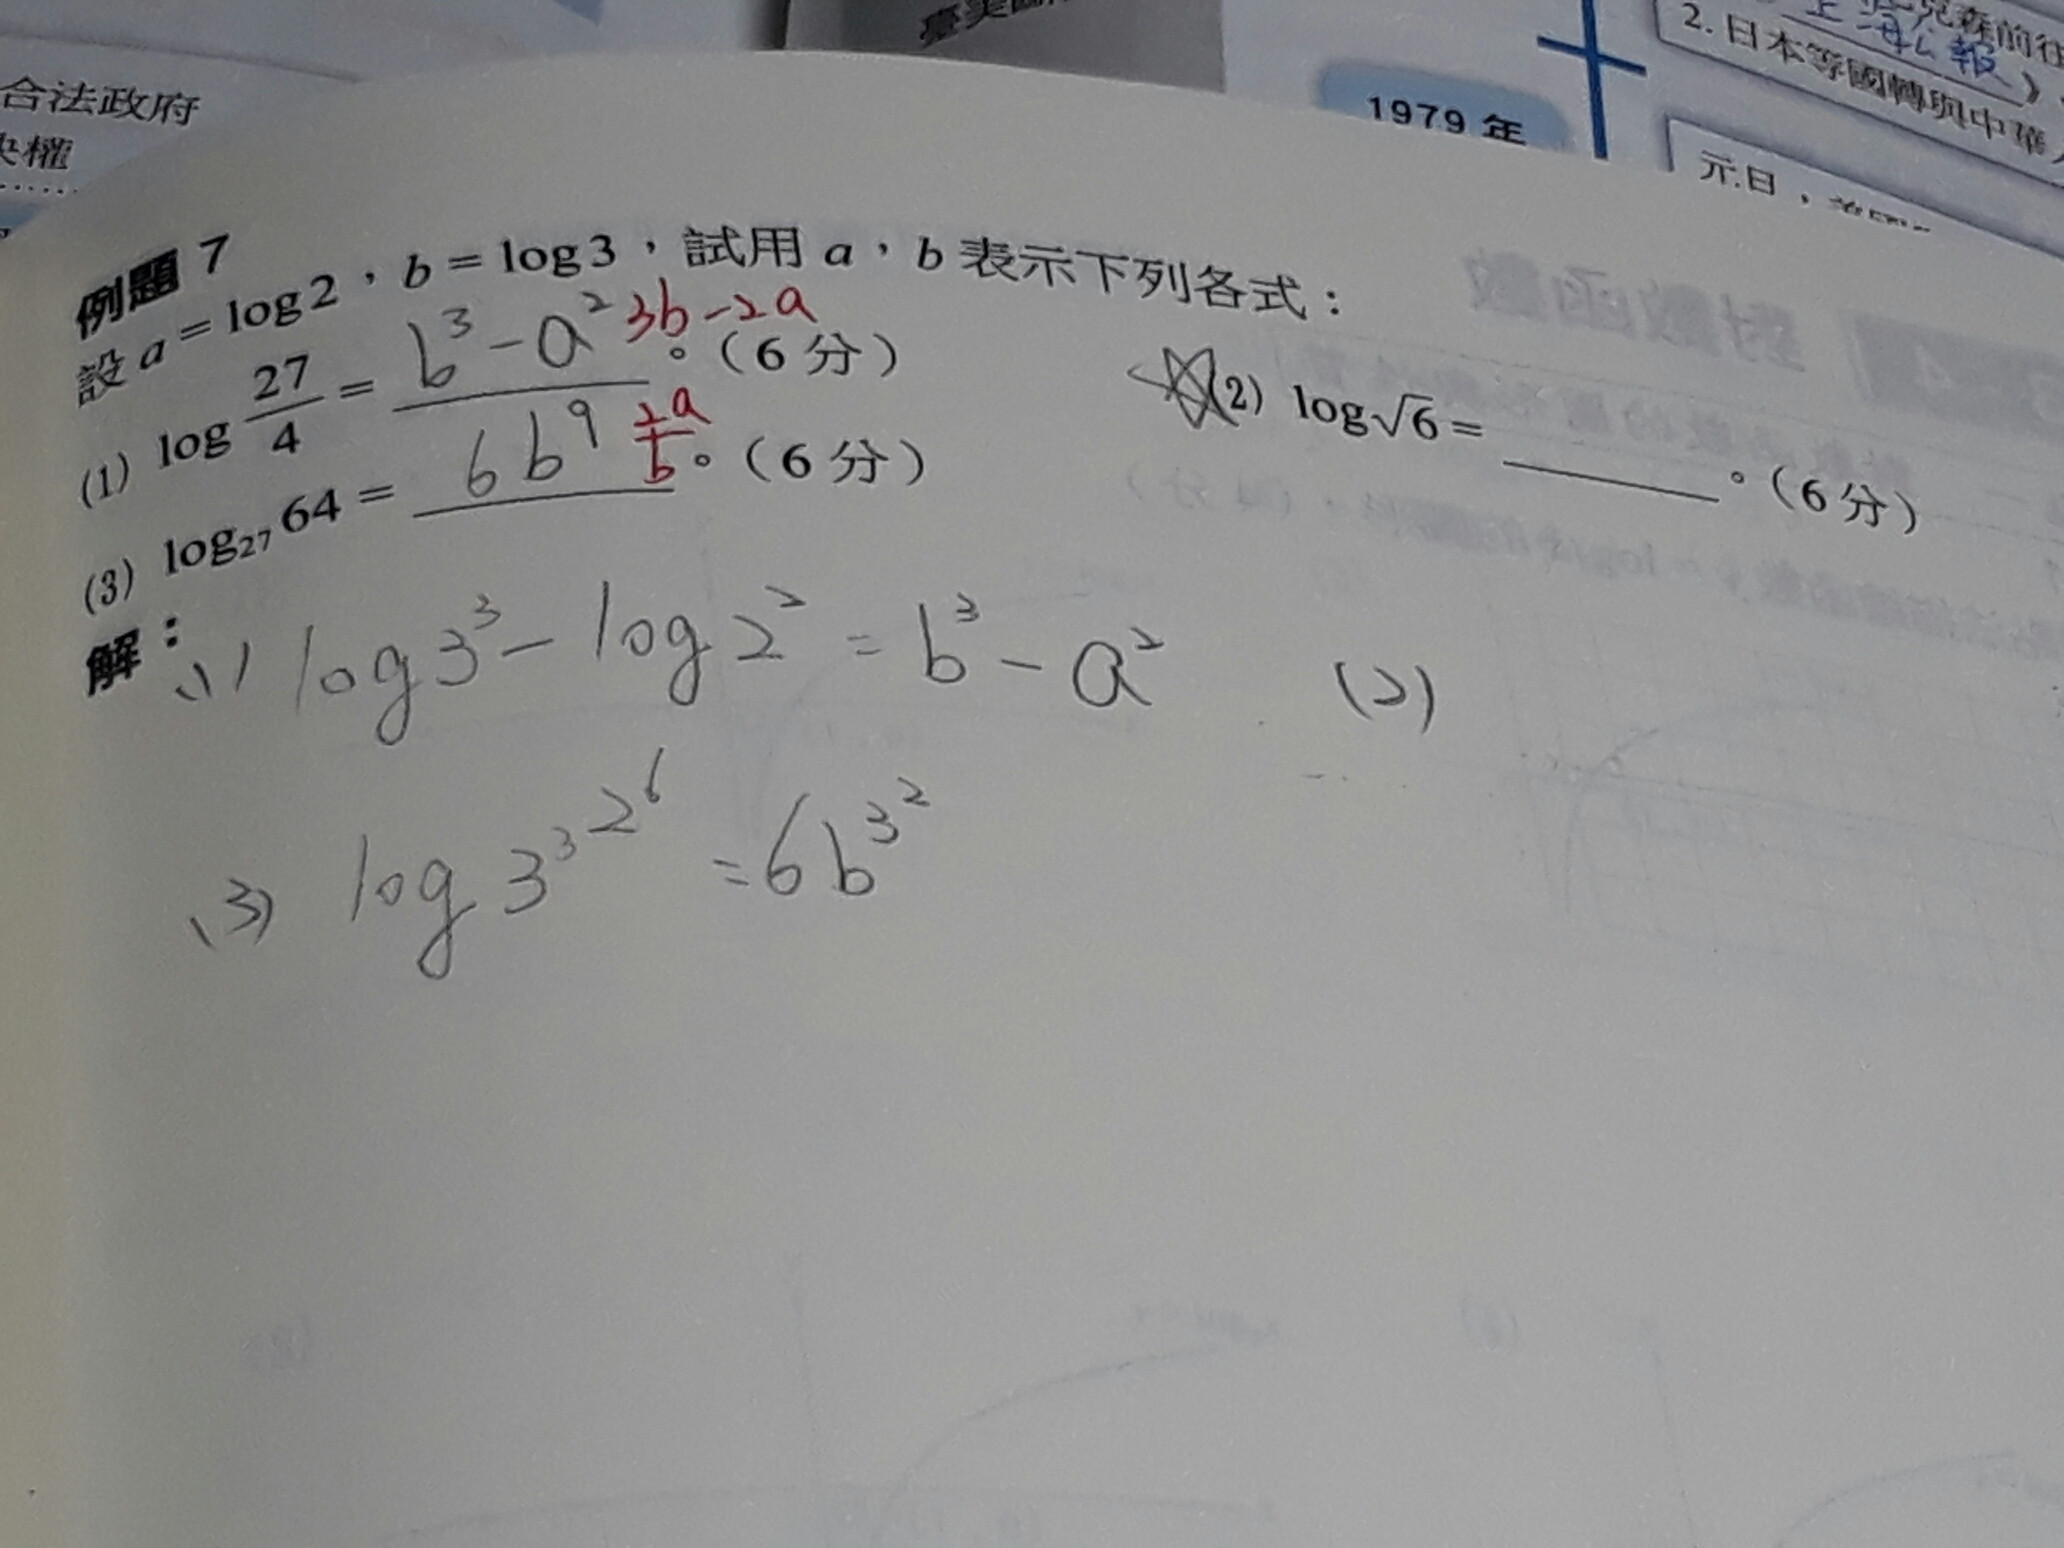 合法政府
權
1979年
上海公報》
2.日本等國轉與中華人
元旦，
例題 7
設 a = log 2，b = log 3，試用 a，b 表示下列各式：
(1) log 27/4 = b³ - a² 3b - 2a 。（6 分）
(2) log √6 = ______ 。（6 分）
(3) log₂₇ 64 = 6b⁹ 2a/b 。（6 分）
解：
(1) log 3³ - log 2² = b³ - a²
(2)
(3) log 3³ 2⁶ = 6b³²